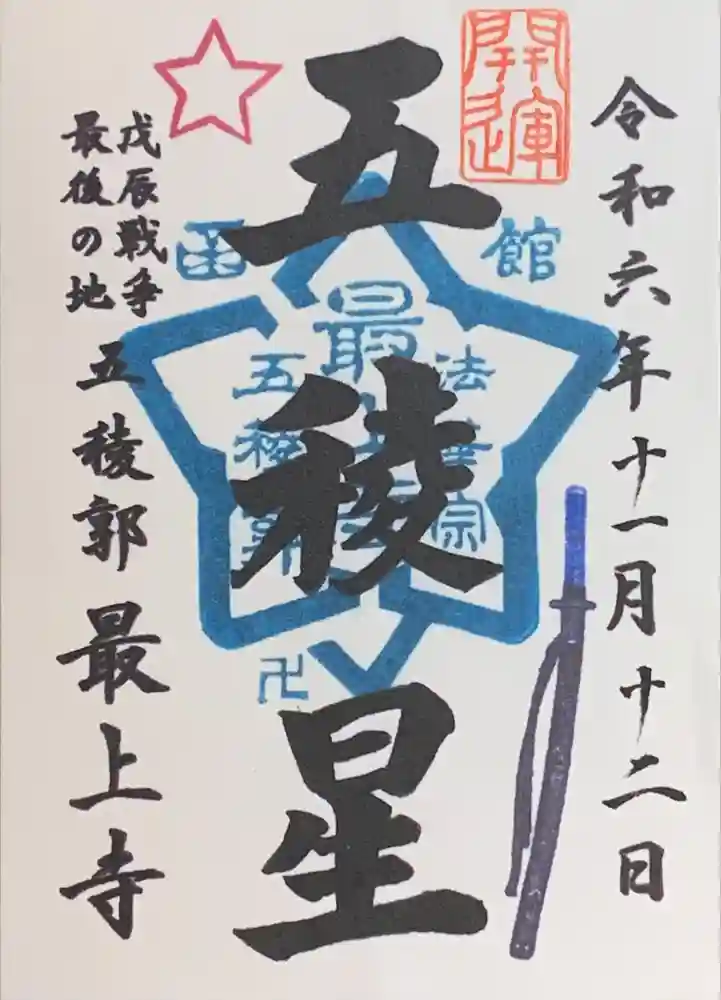 令和六年十一月十二日
開運
五稜星
函館
法華宗
最上寺
五稜郭
卍
戊辰戦争
最後の地
五稜郭 最上寺